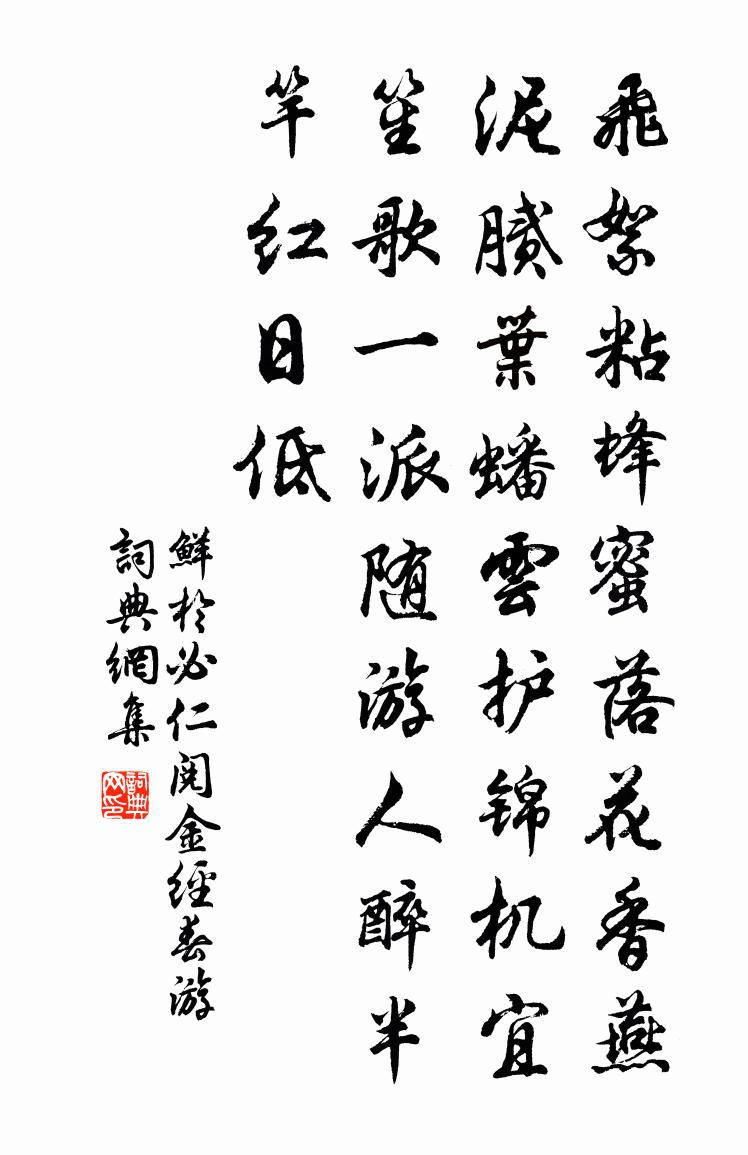 飛絮粘蜂蜜落花香燕
泥膩葉蟠雲护锦机宜
笙歌一派随游人醉半
竿红日低
鮮於必仁阅金經春游
詞典網集
詞典网印